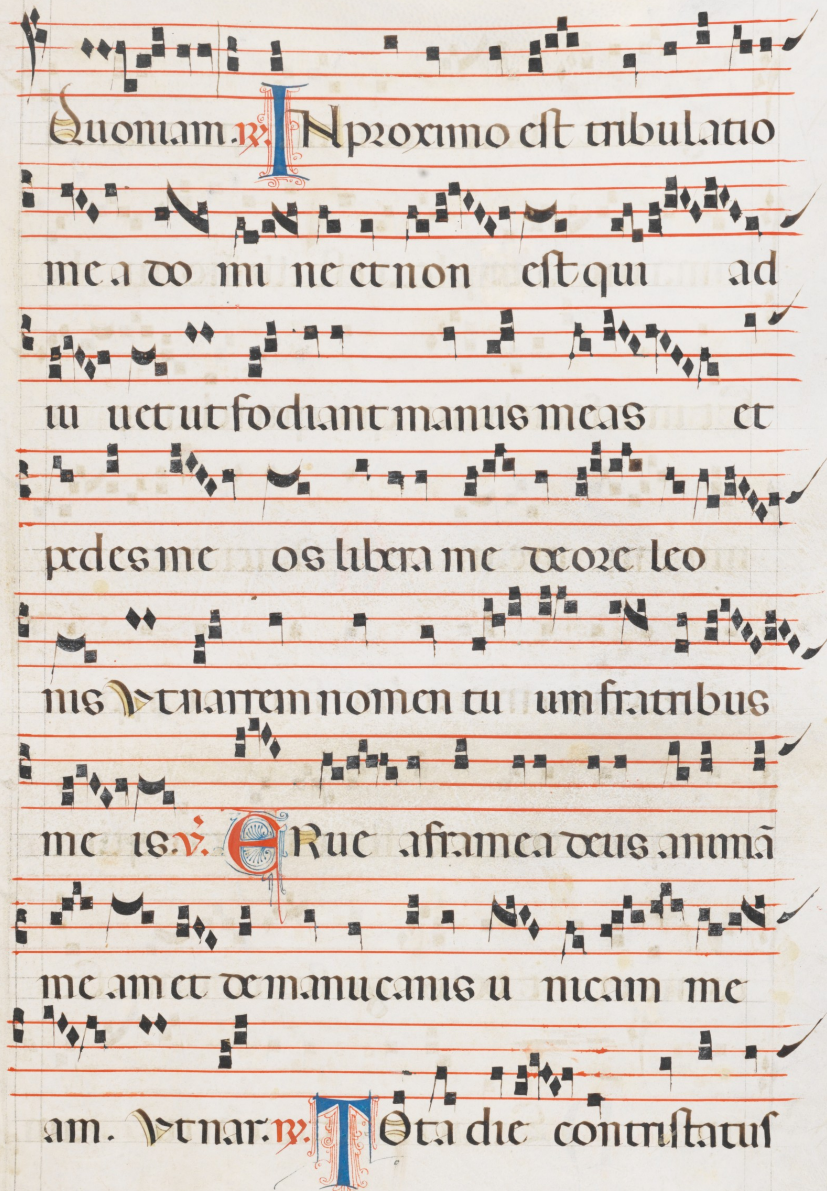 Quoniam. ℟. IN proximo est tribulatio
me a do mi ne et non est qui ad
iu uet ut fo diant manus meas et
pedes me os libera me de ore leo
nis Vt narrem nomen tu um fratribus
me is. ℣. ERue a framea deus animā
me am et de manu canis u nicam me
am. Vt nar. ℟. TOta die contristatus